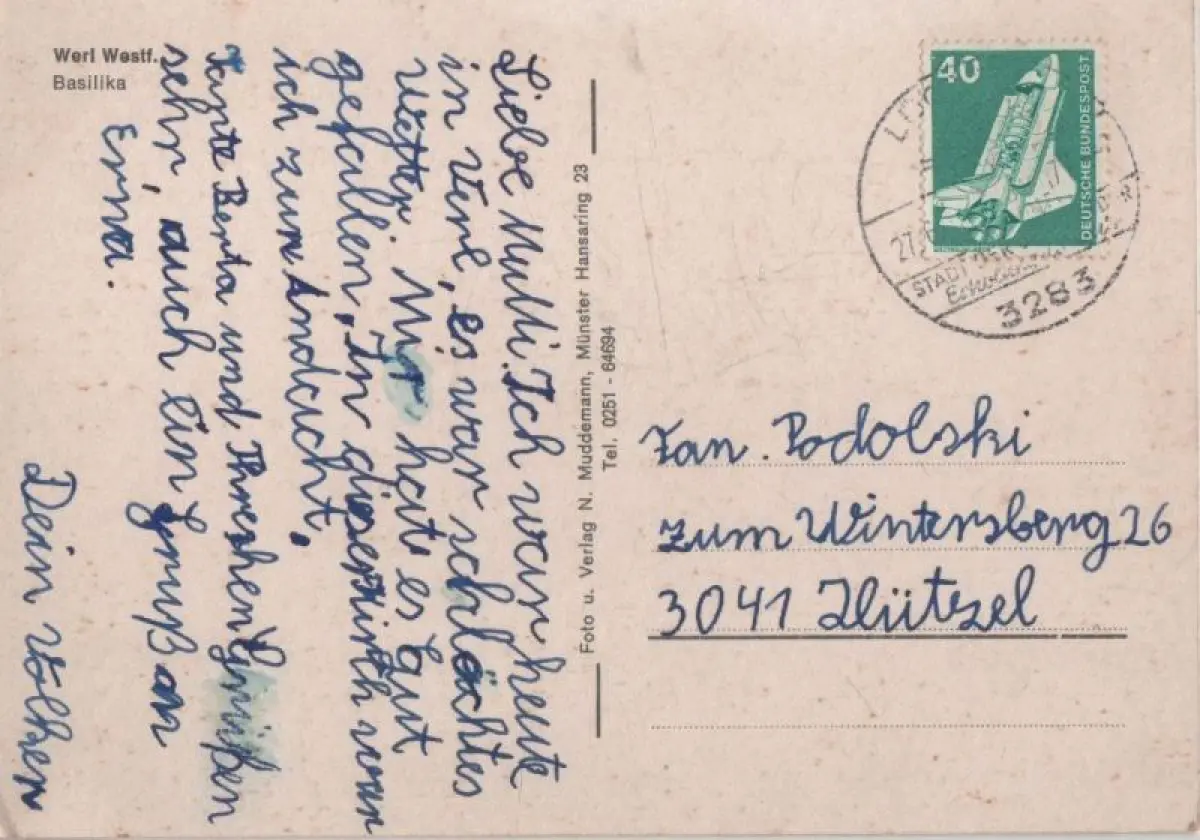 Werl Westf.
Basilika
Liebe Mutti. Ich war heute
in Verl, es war schlächtes
wetter. Mir hate es Gut
gefallen, In dieser war
ich zur Andacht,
Tante Berta und Grüßen
sehr, auch ein Gruß an
Erna.
Dein
Foto u. Verlag N. Muddemann, Münster Hansaring 23
Tel. 0251 - 64694
40
DEUTSCHE BUNDESPOST
STADT DER
3283
Fan. Podolski
zum Wintersberg 26
3041 Hützel